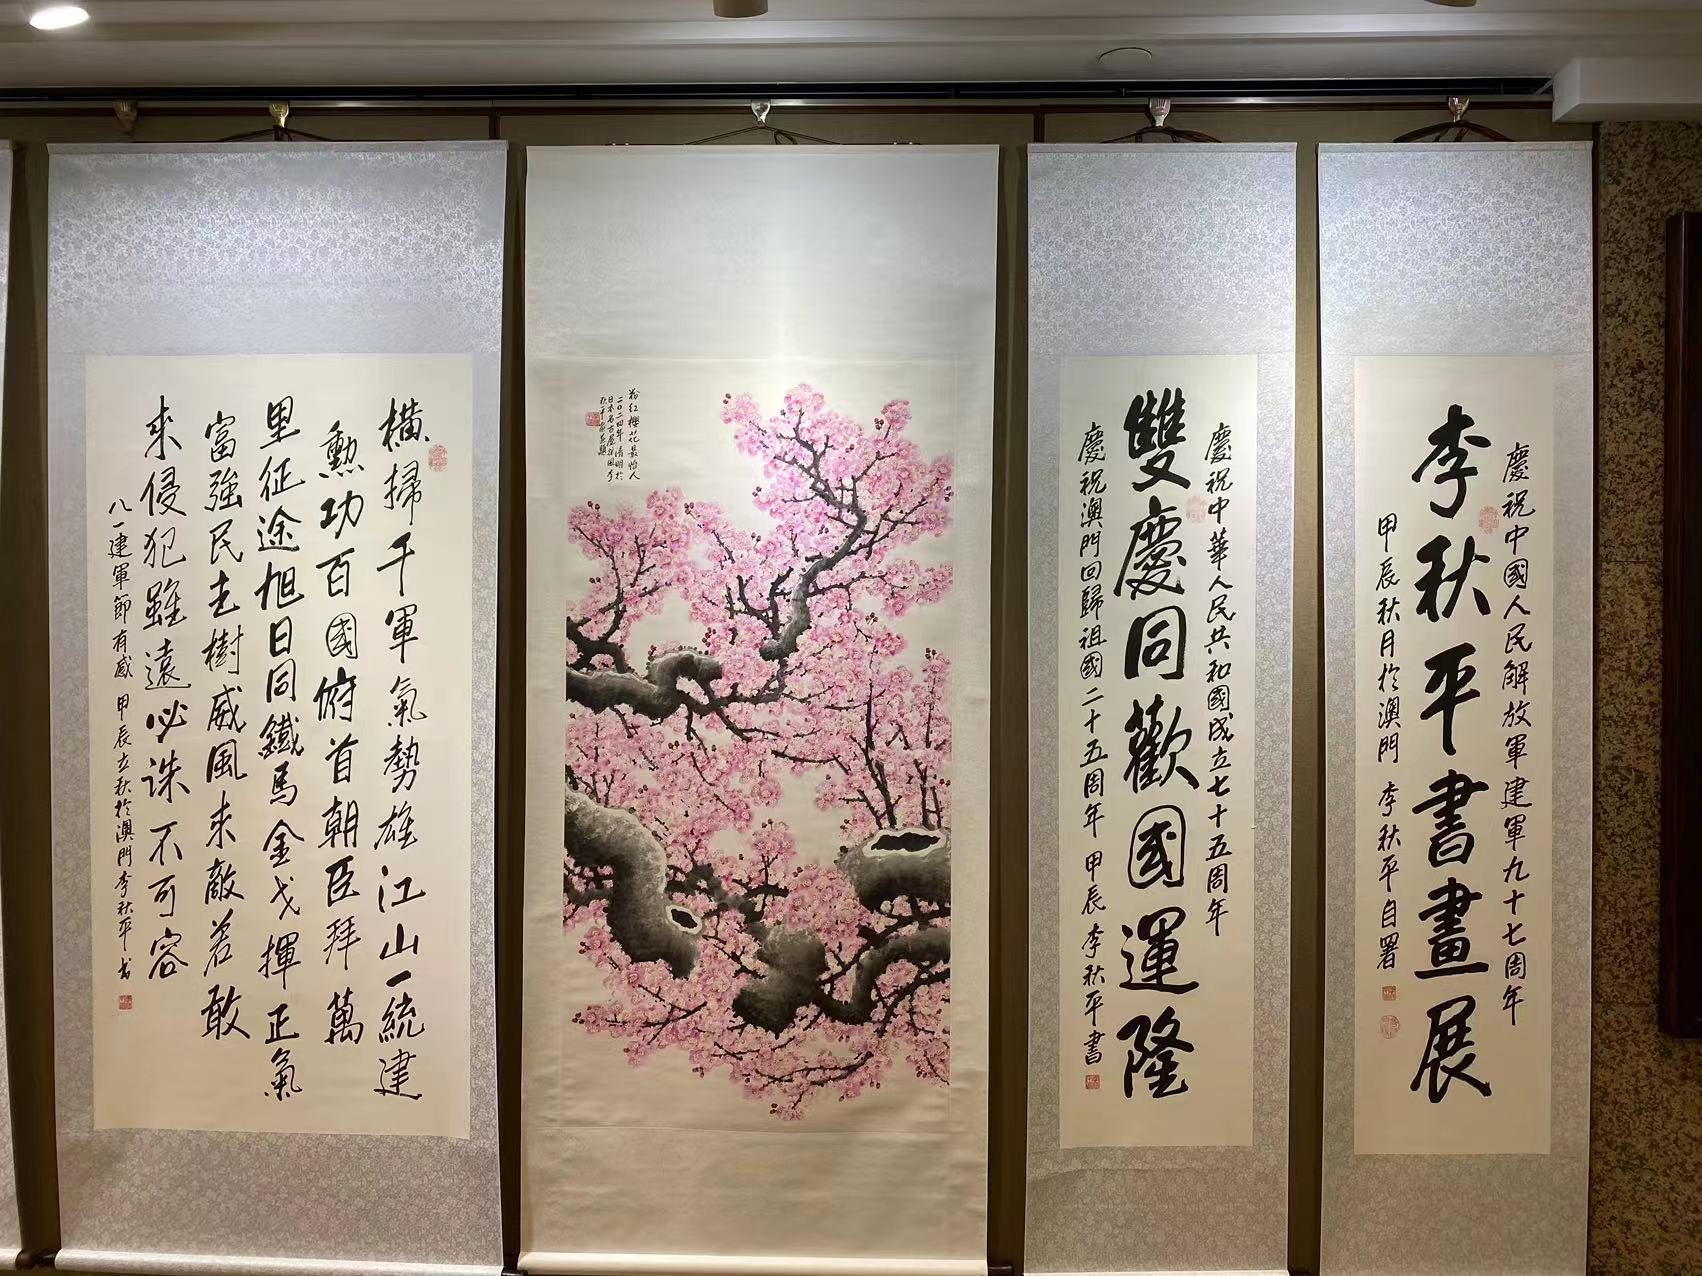 慶祝中國人民解放軍建軍九十七周年
李秋平書畫展
甲辰秋月於澳門 李秋平自署
慶祝中華人民共和國成立七十五周年
雙慶同歡國運隆
慶祝澳門回歸祖國二十五周年 甲辰 李秋平書
粉紅櫻花最怡人
二〇二四年清明於
日本名古屋採風李
秋平寫並題
橫掃千軍氣勢雄江山一統建
勲功百國俯首朝臣拜萬
里征途旭日同鐵馬金戈揮正氣
富強民主樹威風来敵若敢
来侵犯雖遠必誅不可容
八一建軍節有感 甲辰立秋於澳門李秋平书